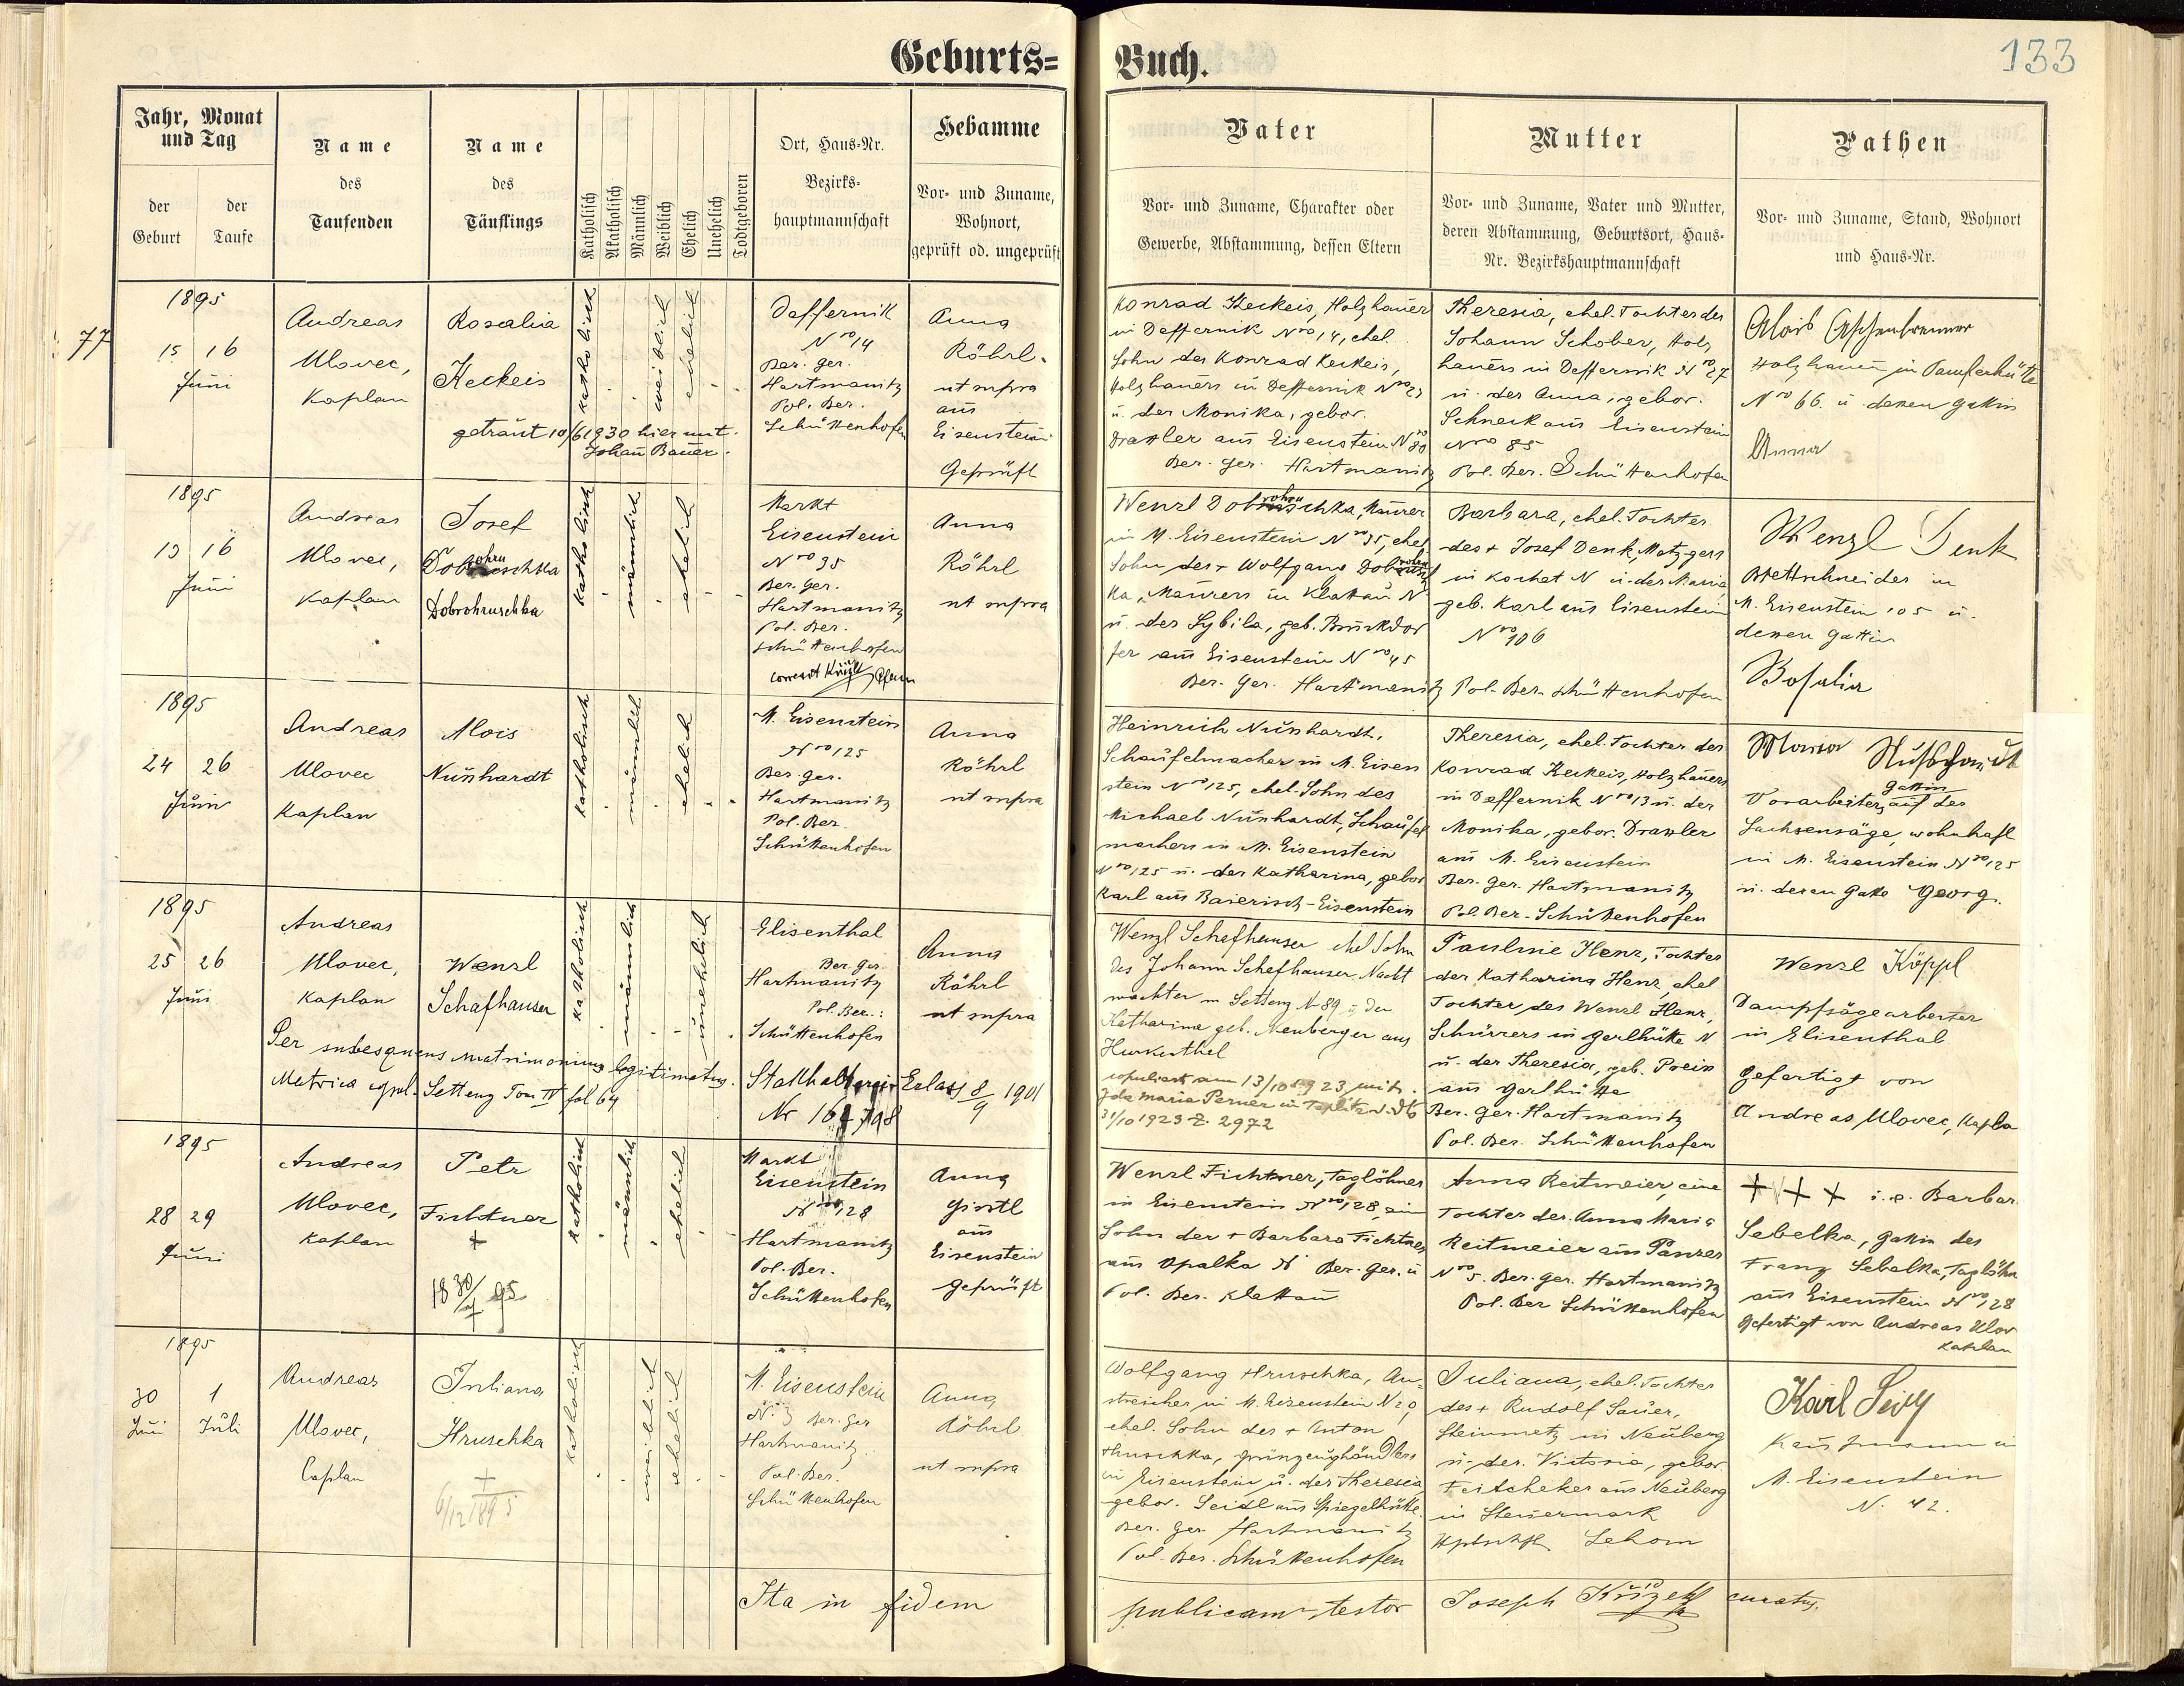 Geburts= Buch.
133
Jahr, Monat und Tag
der Geburt
der Taufe
Name des Taufenden
Name des Täuflings
Katholisch
Akatholisch
Männlich
Weiblich
Ehelich
Unehelich
Todtgeboren
Ort, Haus-Nr. Bezirks-hauptmannschaft
Hebamme
Vor- und Zuname, Wohnort, geprüft od. ungeprüft
Vater
Vor- und Zuname, Charakter oder Gewerbe, Abstammung, dessen Eltern
Mutter
Vor- und Zuname, Vater und Mutter, deren Abstammung, Geburtsort, Haus-Nr. Bezirkshauptmannschaft
Pathen
Vor- und Zuname, Stand, Wohnort und Haus-Nr.
77
1895
15 16
Juni
Andreas
Ulovec,
Kaplan
Rosalia
Keckeis
getraut 10/6 1930 hier mit
Johann Bauer.
katholisch
weiblich
ehelich
Deffernik
Nro 14
Ber. Ger.
Hartmanitz
Pol. Ber.
Schüttenhofen
Anna
Röhrl
ut supra
aus
Eisenstein
Geprüft
Konrad Keckeis, Holzhauer
in Deffernik Nro 14, ehel.
Sohn des Konrad Keckeis,
Holzhauers in Deffernik Nro 27
u. der Monika, gebor.
Draxler aus Eisenstein Nro 80
Ber. Ger. Hartmanitz
Theresia, ehel. Tochter des
Johann Schober, Holz
hauers in Deffernik Nro 27
u. der Anna, gebor.
Schneck aus Eisenstein
Nro 85
Pol. Ber. Schüttenhofen
Alois Aschenbrenner
Holzhauer in
Nro 66. u. dessen Gattin
Anna
1895
15 16
Juni
Andreas
Ulovec,
Kaplan
Josef
Dobrohruschka
katholisch
männlich
ehelich
Markt
Eisenstein
Nro 35
Ber. Ger.
Hartmanitz
Pol. Ber.
Schüttenhofen
Anna
Röhrl
ut supra
Wenzl Dobrohruschka, Maurer
in M. Eisenstein Nro 35, ehel
Sohn des + Wolfgang Dobrohrusch
ka, Maurers in Klattau N
u. der Sybila, geb. Bruckdor
fer aus Eisenstein Nro 45
Ber. Ger. Hartmanitz
Barbara, ehel. Tochter
des + Josef Denk, Metzgers
in Kochet N u. der Maria
geb. Karl aus Eisenstein
Nro 106
Pol. Ber. Schüttenhofen
Wenzl Denk
Brettschneider in
M. Eisenstein 105 u.
dessen Gattin
Rosalia
1895
24 26
Juni
Andreas
Ulovec
Kaplan
Alois
Nusshardt
katholisch
männlich
ehelich
M. Eisenstein
Nro 125
Ber. Ger.
Hartmanitz
Pol. Ber.
Schüttenhofen
Anna
Röhrl
ut supra
Heinrich Nusshardt,
Schaufelmacher in M. Eisen
stein Nro 125, ehel. Sohn des
Michael Nusshardt, Schaufel
machers in M. Eisenstein
Nro 125 u. der Katharina, gebor
Karl aus Baierisch-Eisenstein
Theresia, ehel. Tochter des
Konrad Keckeis, Holzhauers
in Deffernik Nro 13 u. der
Monika, gebor. Draxler
aus M. Eisenstein
Ber. Ger. Hartmanitz
Pol. Ber. Schüttenhofen
Maria Nusshardt
Gattin
Vorarbeiters auf der
Sachsensäge, wohnhaft
in M. Eisenstein Nro 125
u. deren Gatte Georg.
1895
25 26
Juni
Andreas
Ulovec,
Kaplan
Wenzl
Schafhauser
katholisch
männlich
unehelich
Elisenthal
Ber. Ger.
Hartmanitz
Pol. Ber.:
Schüttenhofen
Anna
Röhrl
ut supra
Per subsequens matrimonium legitimatus. Statthalterei Erlass 8/9 1901
Metrica Setteng Tom IV fol 64
Nr
Wenzl Schefhauser ehel Sohn
des Johann Schefhauser Nacht
wächter in Setteng N 89 u der
Katharina geb. Neuberger aus
Hurkenthal
copuliert am 13/10 1923 mit
Ida Maria Perner in Teplitz
31/10 1923 Z. 2972
Pauline Henz, Tochter
der Katharina Henz, ehel
Tochter des Wenzl Henz,
Schürers in Gerlhütte N
u. der Theresia, geb. Preis
aus Gerlhütte
Ber. Ger. Hartmanitz
Pol. Ber. Schüttenhofen
Wenzl Köppl
Dampfsägearbeiter
in Elisenthal
gefertigt von
Andreas Ulovec, Kapla
1895
28 29
Juni
Andreas
Ulovec,
Kaplan
Petr
Fichtner
+
katholisch
männlich
ehelich
Markt
Eisenstein
Nro 128
Hartmanitz
Pol. Ber.
Schüttenhofen
Anna
Girstl
aus
Eisenstein
geprüft
Wenzl Fichtner, Taglöhner
in Eisenstein Nro 128, ein
Sohn der + Barbara Fichtner
aus Opalka N Ber. Ger. u
Pol. Ber. Klattau
Anna Reitmeier, eine
Tochter der Anna Maria
Reitmeier aus Panzer
Nro 5. Ber. Ger. Hartmanitz
Pol. Ber Schüttenhofen
+++ i.e. Barbar
Sebelka, Gattin des
Franz Sebelka, Taglöhn
aus Eisenstein Nro 128
Gefertigt von Andreas Ulov
Kaplan
1895
30 1
Juni Juli
Andreas
Ulovec,
Caplan
Juliana
Hruschka
+
6/12 1895
katholisch
weiblich
ehelich
M. Eisenstein
N. Ber. Ger
Hartmanitz.
Pol. Ber.
Schüttenhofen
Anna
Röhrl
ut supra
Wolfgang Hruschka, An-
streicher in M. Eisenstein N 20,
ehel. Sohn des + Anton
Hruschka, Grünzeughändlers
in Eisenstein u. der Theresia
gebor. Seidl aus Spiegelhütte
Ber. Ger. Hartmanitz
Pol. Ber. Schüttenhofen
Juliana, ehel. Tochter
des + Rudolf Sauer,
Steinmetz in Neuberg
u. der Victoria, gebor
aus Neuberg
in Steiermark
Karl
Kaufmann in
M. Eisenstein
N. 42.
Ita in fidem publicam testor Joseph Křižek curatus.